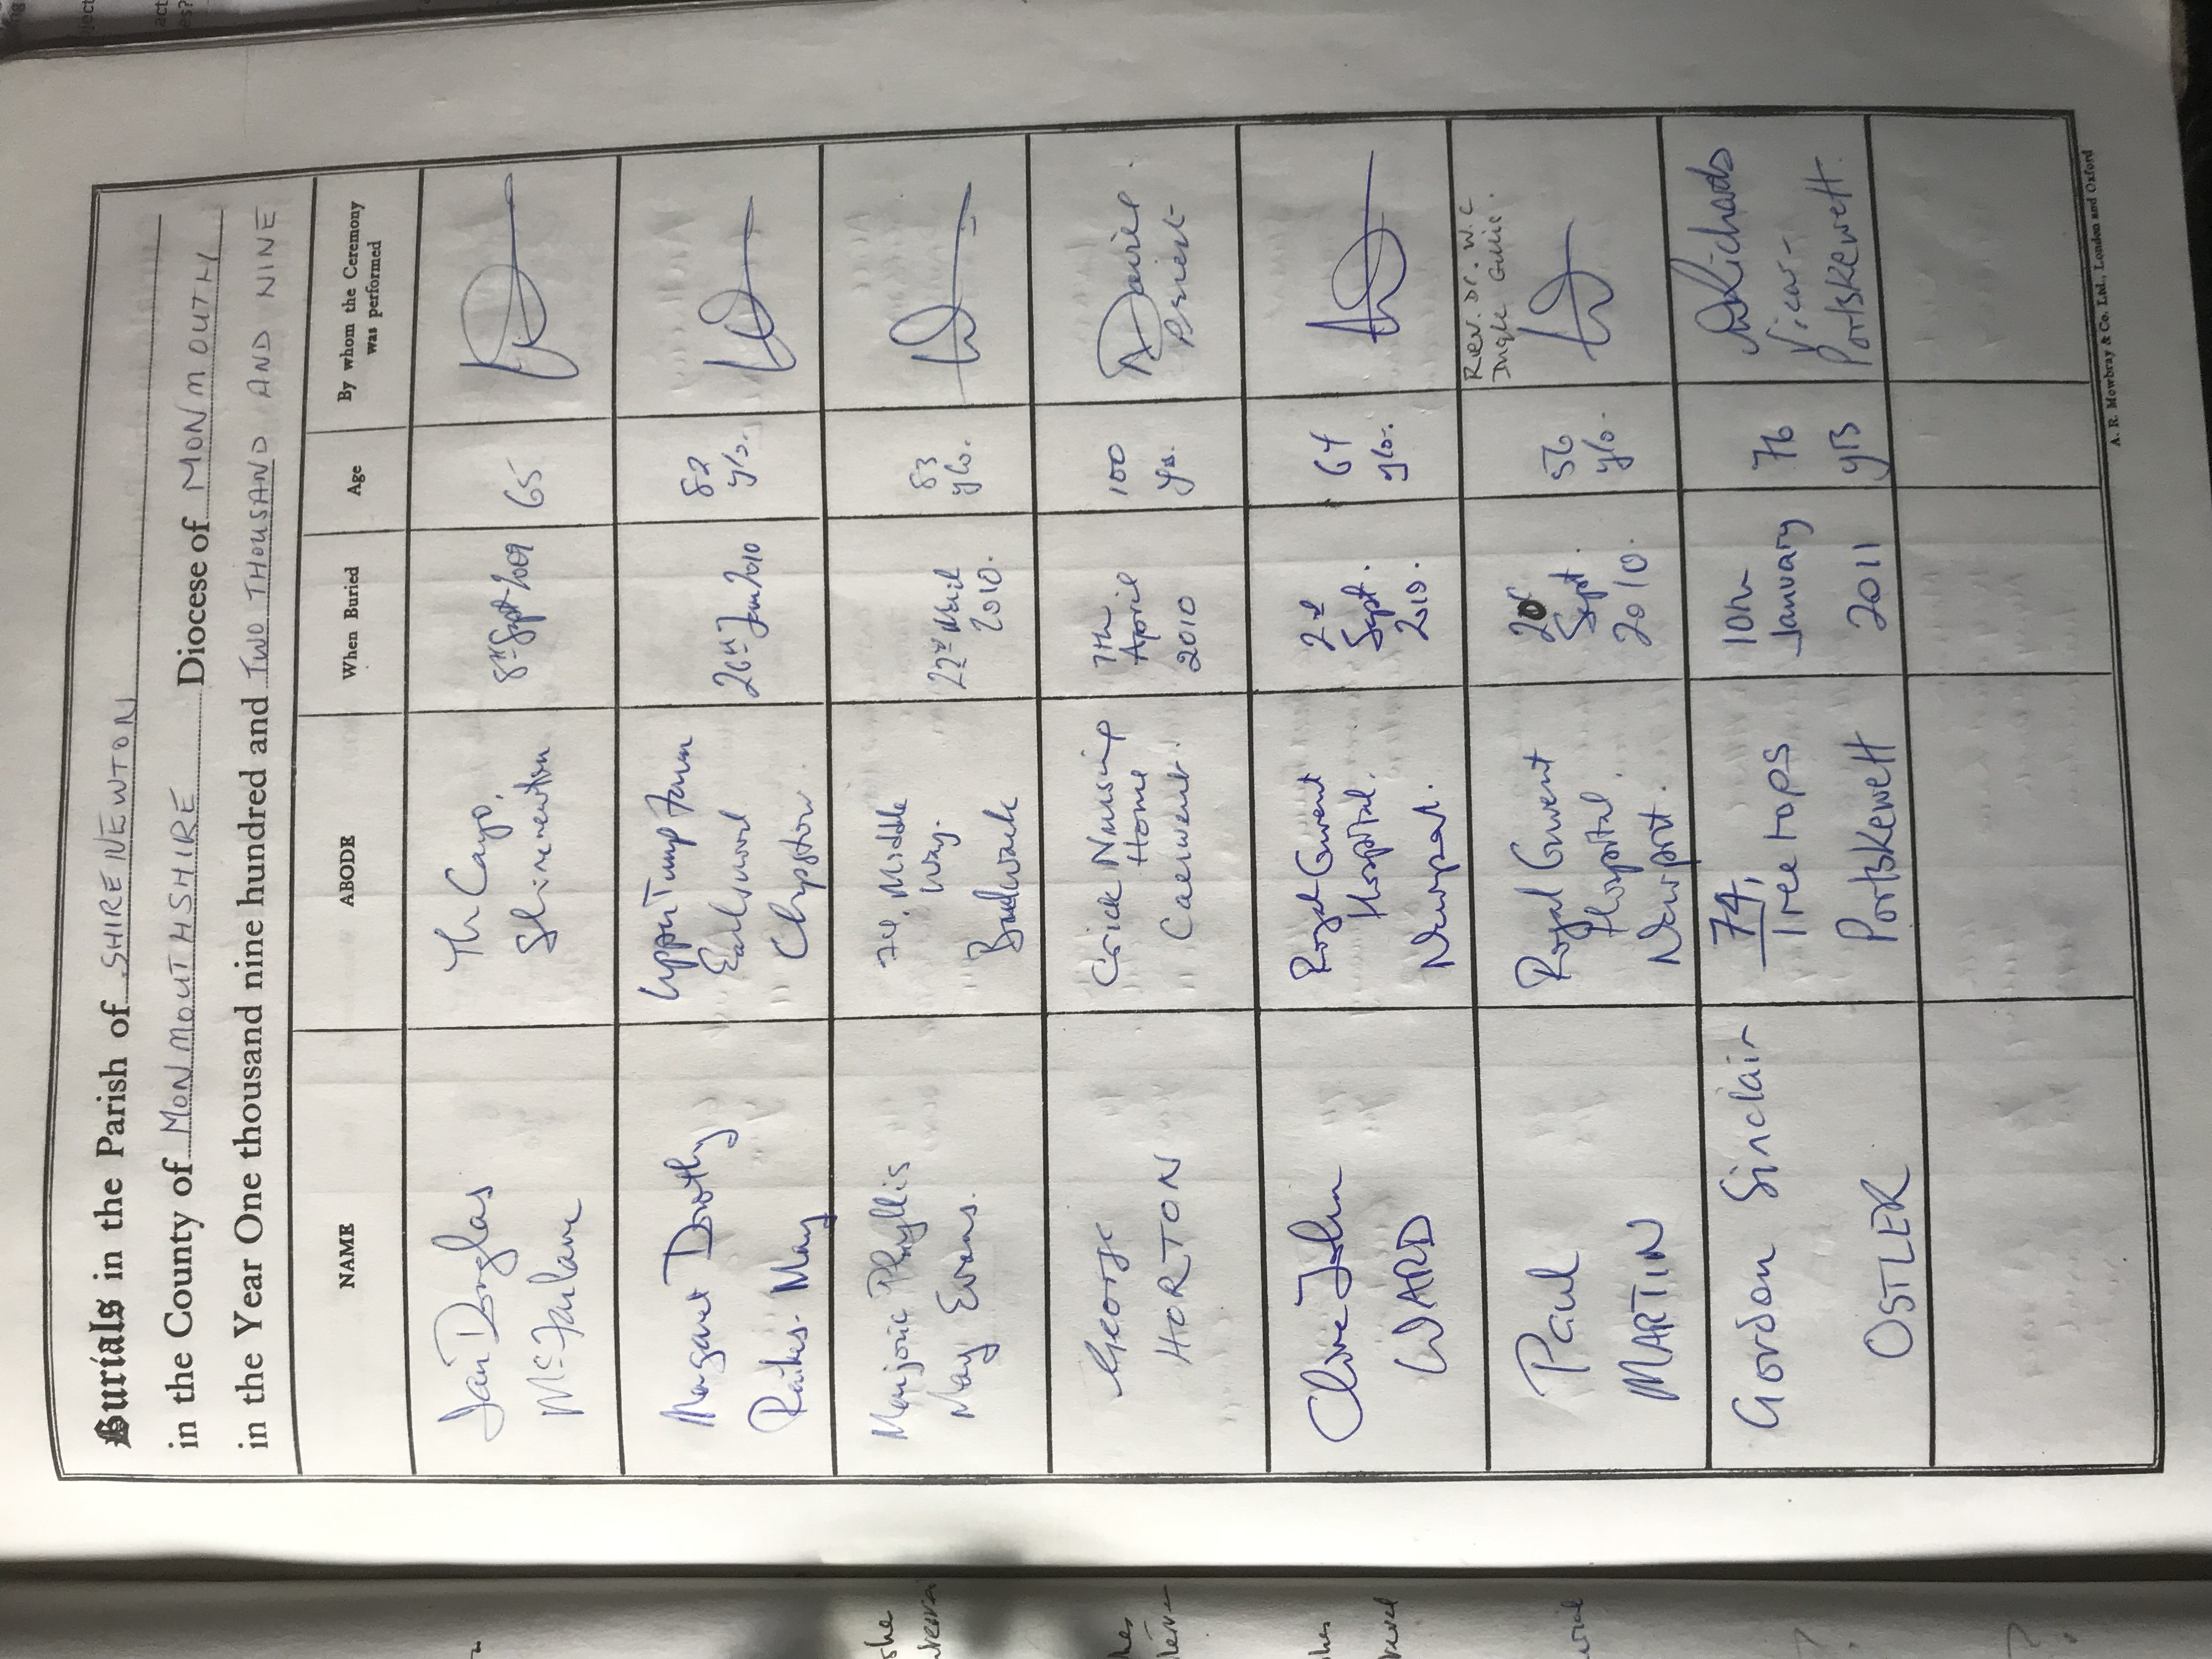 Burials in the Parish of SHIRENEWTON
in the County of MONMOUTHSHIRE Diocese of MONMOUTH
in the Year One thousand nine hundred and TWO THOUSAND AND NINE
NAME ABODE When Buried Age By whom the Ceremony was performed
Iain Douglas
McFarlane
The Cayo,
Shirenewton
8th Sept 2009
65
Margaret Dorothy
Raikes-May
Upper Tump Farm
Earlswood
Chepstow
26th Jan 2010
82
y/o.
Marjorie Phyllis
May Evans.
74, Middle
Way.
Bulwark
22nd
2010.
83
y/o.
George
HORTON
Crick Nursing
Home
Caerwent.
7th
April
2010
100
yrs.
Priest
Clive John
WARD
Royal Gwent
Hospital,
Newport.
2nd
Sept.
2010.
64
y/o.
Paul
MARTIN
Royal Gwent
Hospital
Newport.
Sept.
2010.
56
y/o.
Rev. Dr. W. C
Ingle Gillis.
Gordon Sinclair
OSTLER
74,
Tree tops
Portskewett
10th
January
2011
76
yrs
Richards
Vicar-
Portskewett.
A. R. Mowbray & Co. Ltd., London and Oxford